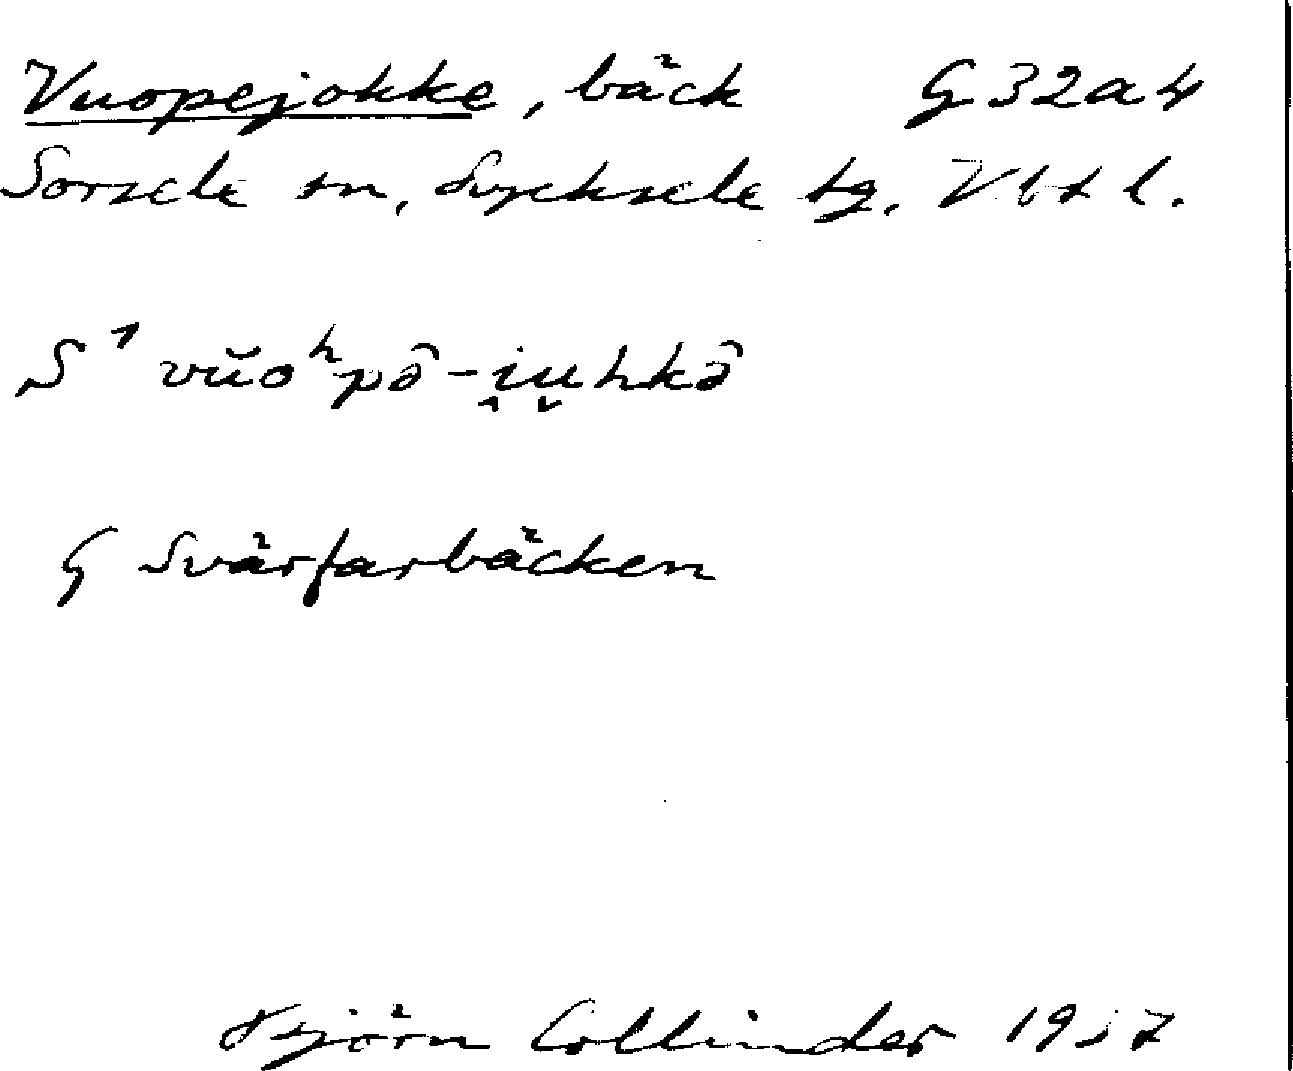 Vuopejokke, bäck G32a4
Sorsele sn, Lycksele tg. Vbtl.
S¹ vŭoʰpə̂-i̭u̬hkə̂
G Svärfarbäcken
Björn Collinder 1957